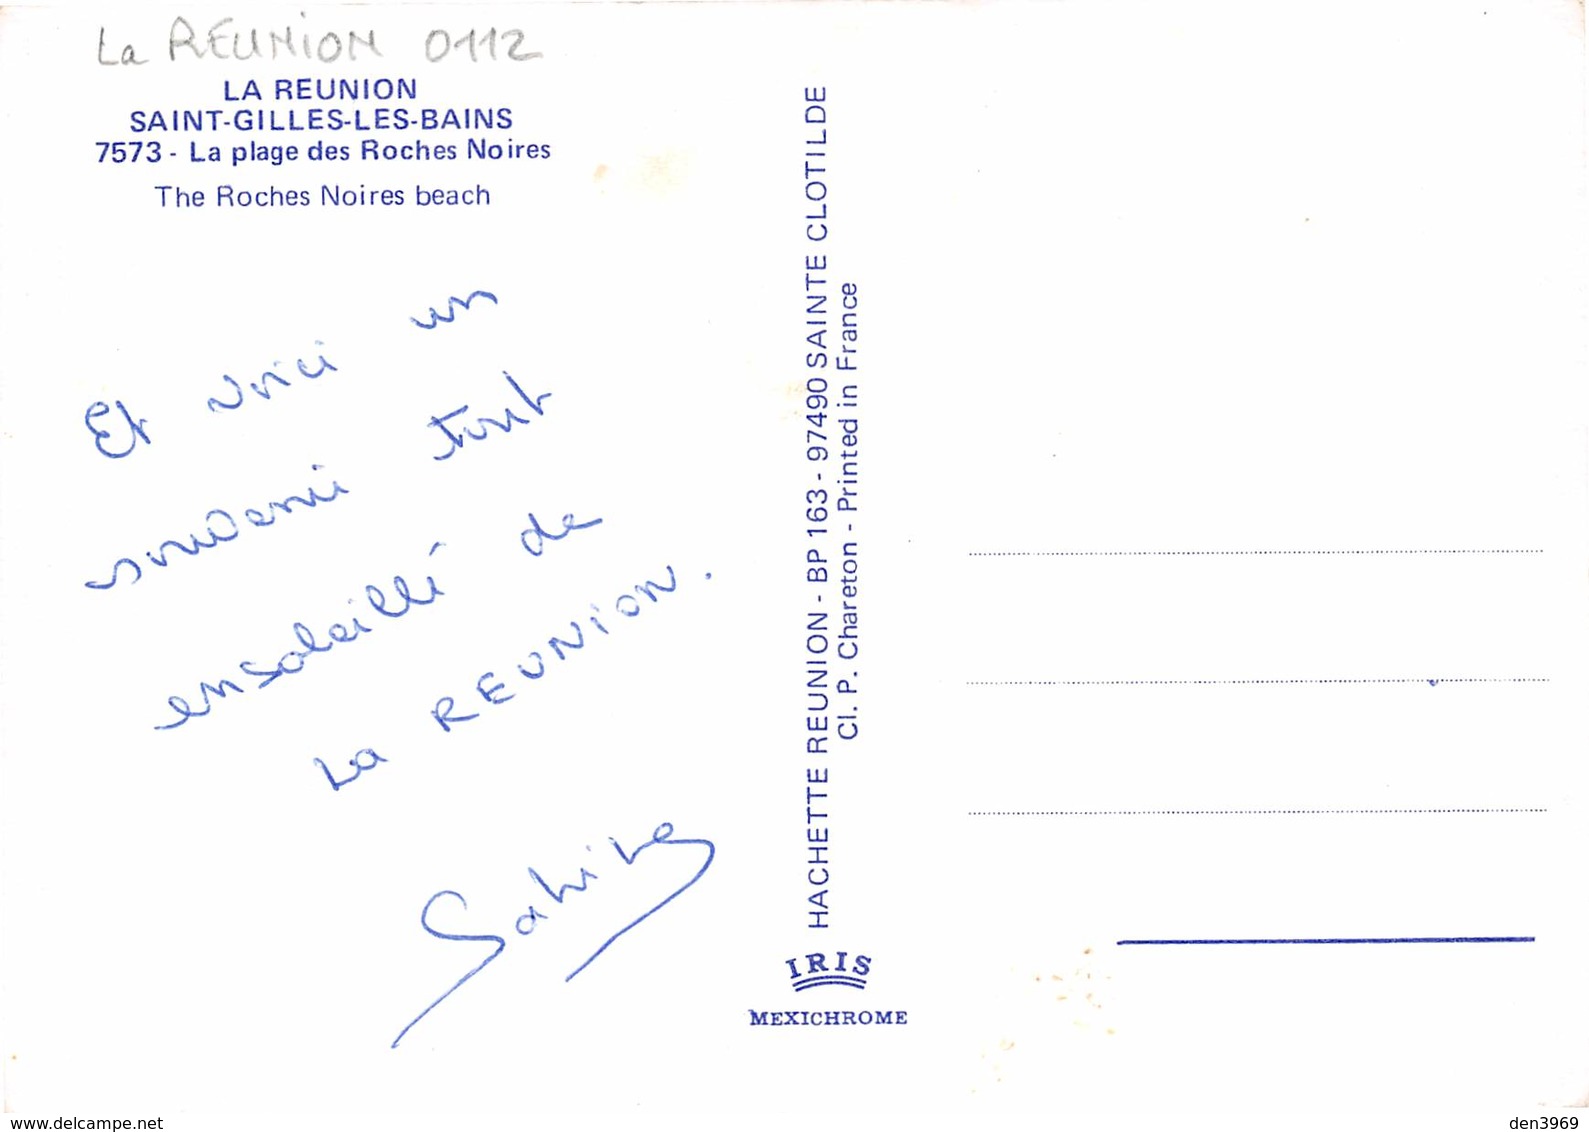 La REUNION 0112
LA REUNION
SAINT-GILLES-LES-BAINS
7573 - La plage des Roches Noires
The Roches Noires beach
Et voici un
souvenir tout
ensoleillé de
La REUNION.
Sabine
HACHETTE REUNION - BP 163 - 97490 SAINTE CLOTILDE
Cl. P. Chareton - Printed in France
IRIS
MEXICHROME
www.delcampe.net
den3969